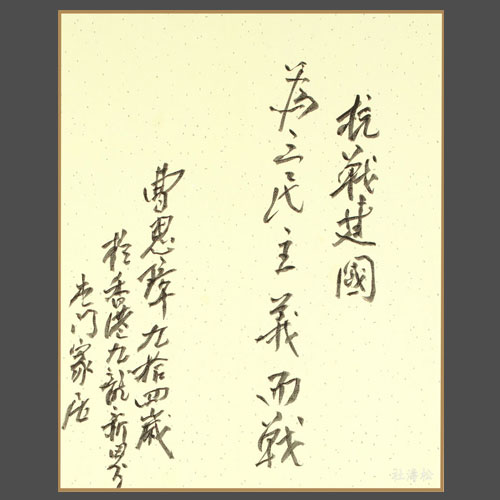 抗戰建國
為三民主義而戰
曹思璋九拾四歲
於香港九龍新界
屯門家居
松濤社